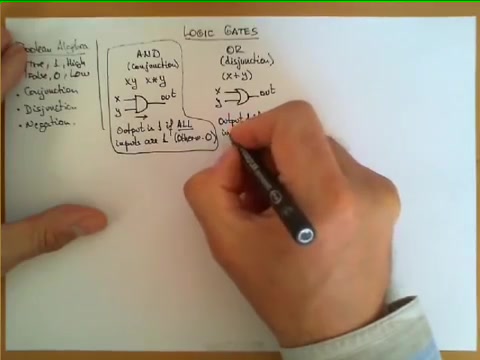 LOGIC GATES
Boolean Algebra
True, 1, High
False, 0, Low
• Conjunction
• Disjunction
• Negation
AND
(conjunction)
xy x*y
x
y
out
Output is 1 if ALL
inputs are 1 (Otherw. 0)
OR
(disjunction)
(x+y)
x
y
out
Output